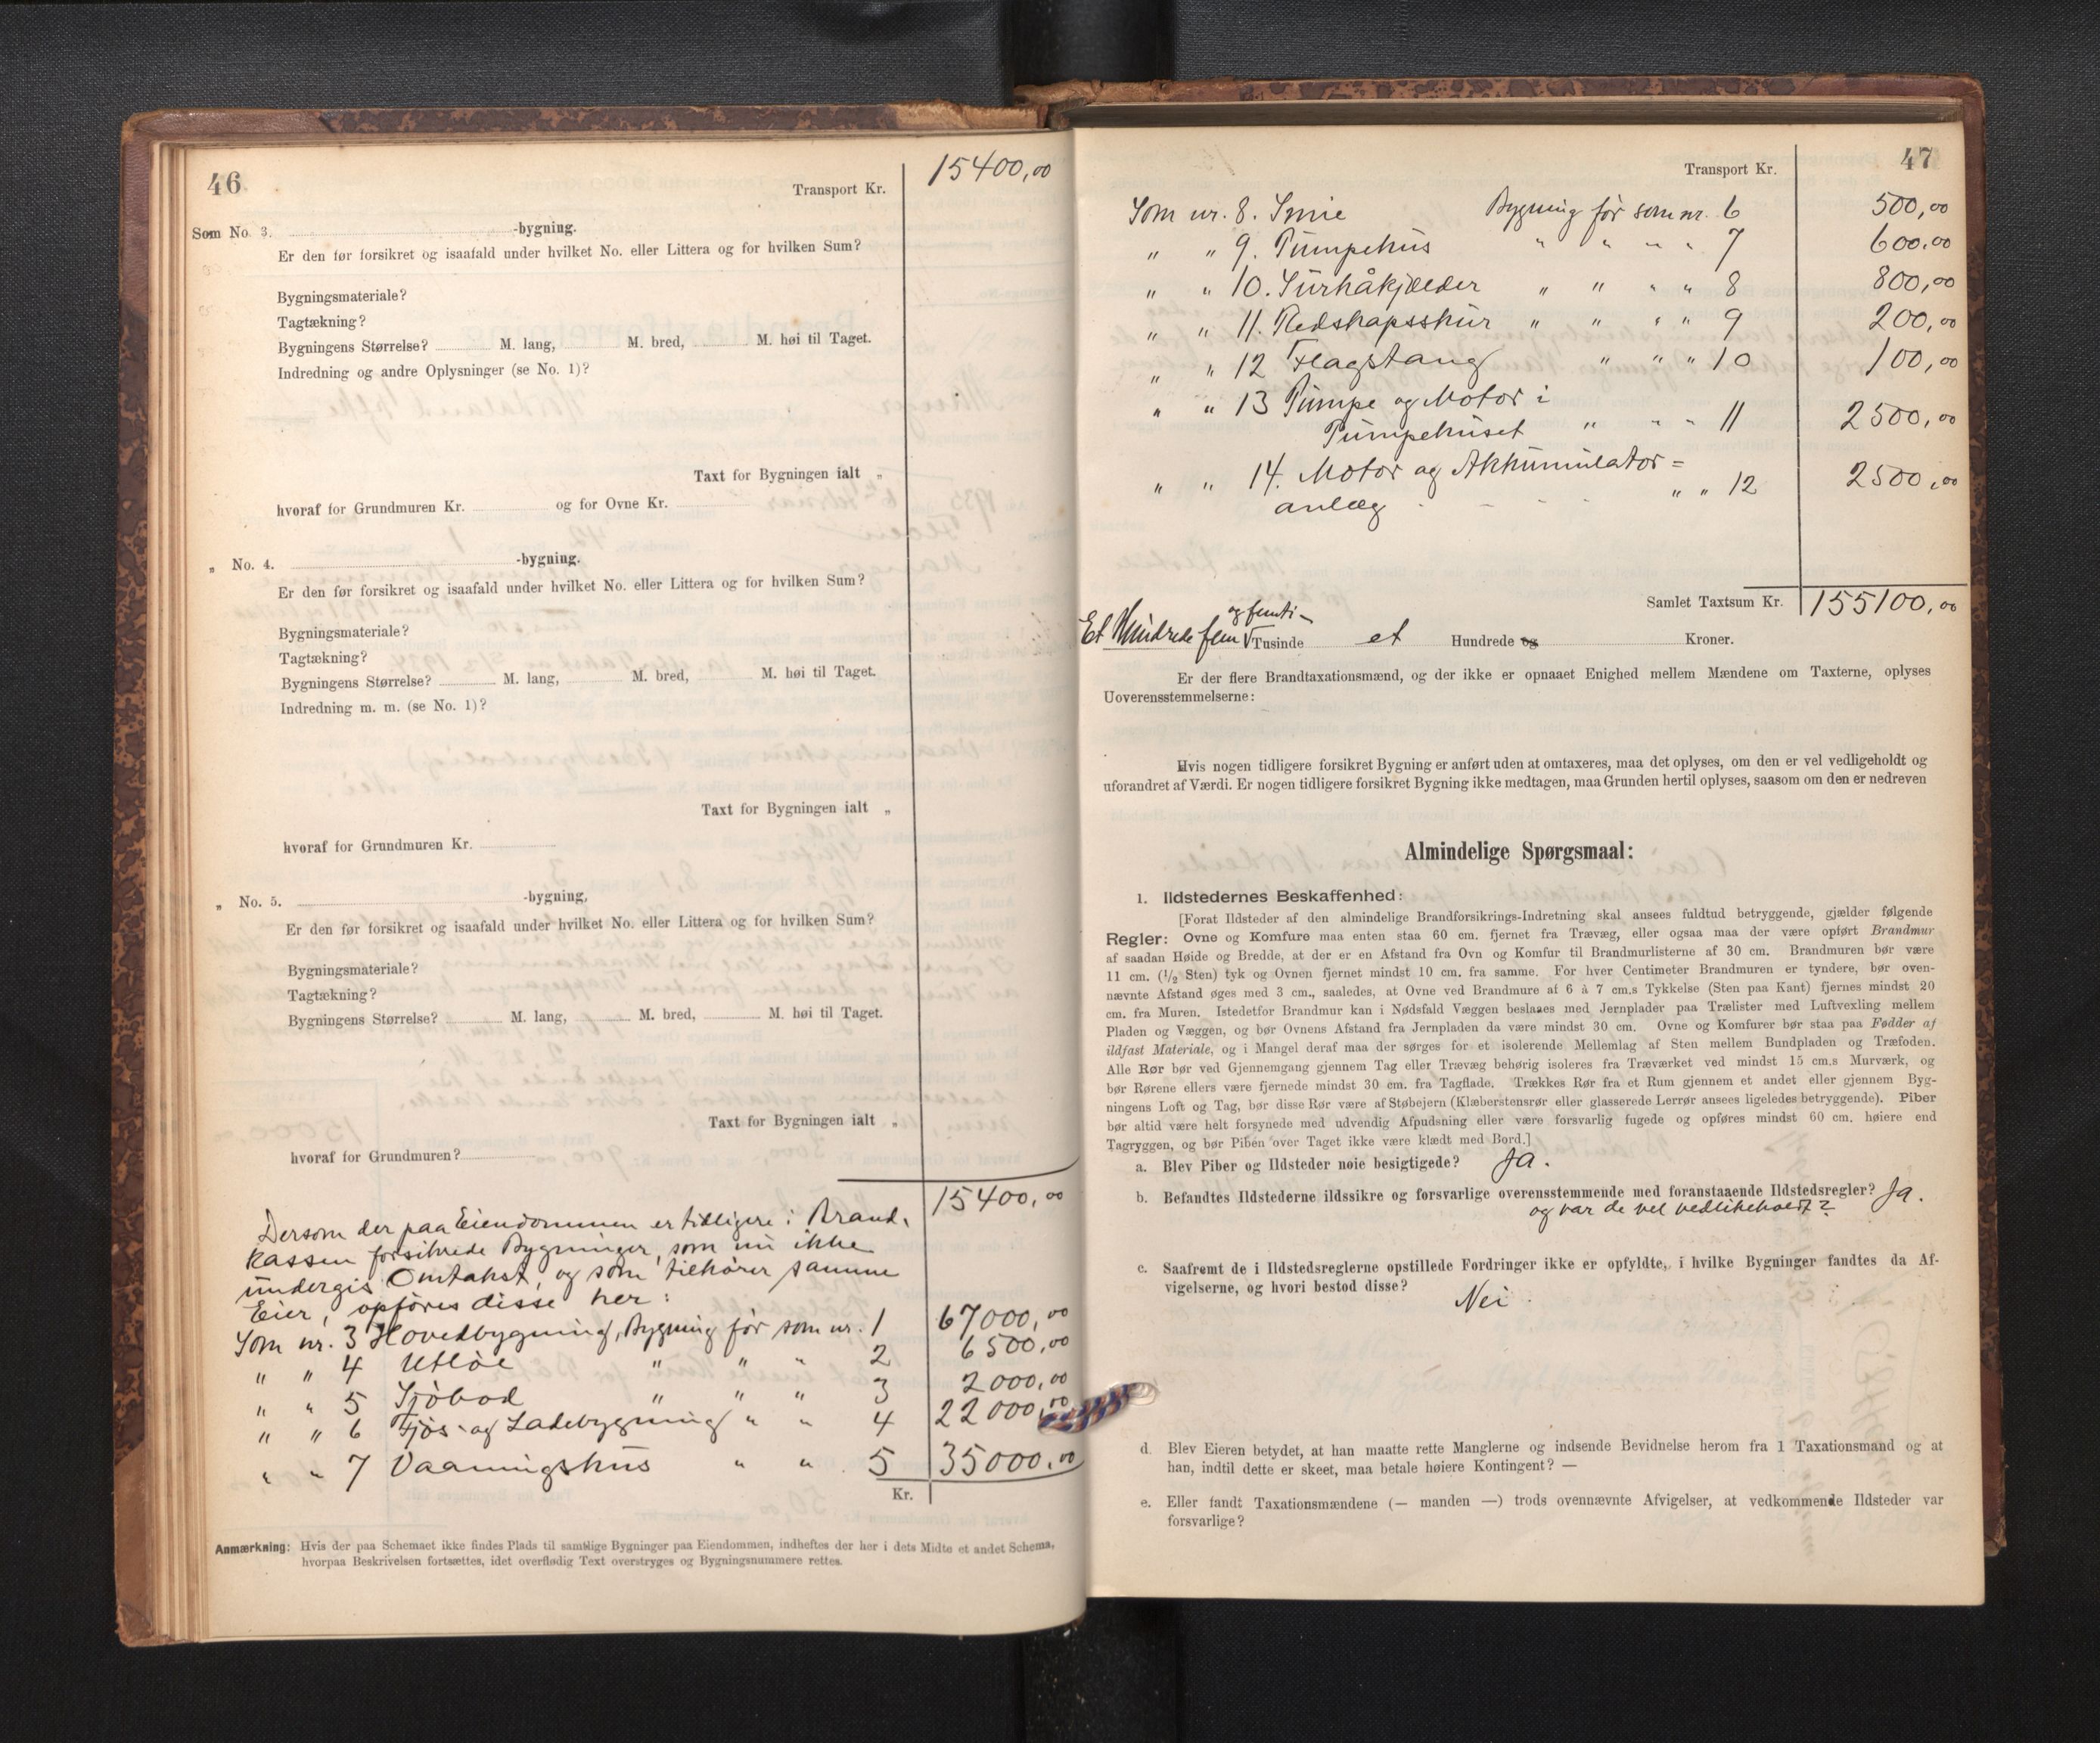 46
Transport Kr. 15400,00
Som No. 3. -bygning.
Er den før forsikret og isaafald under hvilket No. eller Littera og for hvilken Sum?
Bygningsmateriale?
Tagtækning?
Bygningens Størrelse? M. lang, M. bred, M. høi til Taget.
Indredning og andre Oplysninger (se No. 1)?
Taxt for Bygningen ialt „
hvoraf for Grundmuren Kr. og for Ovne Kr.
„ No. 4. -bygning.
Er den før forsikret og isaafald under hvilket No. eller Littera og for hvilken Sum?
Bygningsmateriale?
Tagtækning?
Bygningens Størrelse? M. lang, M. bred, M. høi til Taget.
Indredning m. m. (se No. 1)?
Taxt for Bygningen ialt „
hvoraf for Grundmuren Kr.
„ No. 5. -bygning,
Er den før forsikret og isaafald under hvilket No. eller Littera og for hvilken Sum?
Bygningsmateriale?
Tagtækning?
Bygningens Størrelse? M. lang, M. bred, M. høi til Taget.
Taxt for Bygningen ialt „
hvoraf for Grundmuren?
15400,00
Dersom der paa Eiendommen er tidligere i Brand-
kassen forsikrede Bygninger, som nu ikke
undergis Omtakst, og som tilhører samme
Eier, opføres disse her:
Som nr. 3 Hovedbygning, Bygning før som nr. 1 67000,00
„ „ 4 Utløe „ „ „ 2 6500,00
„ „ 5 Sjøbod „ „ „ 3 2000,00
„ „ 6 Fjøs- og Ladebygning „ „ 4 22000,00
„ „ 7 Vaaningshus „ „ 5 35000,00
Kr.
Anmærkning: Hvis der paa Schemaet ikke findes Plads til samtlige Bygninger paa Eiendommen, indheftes der her i dets Midte et andet Schema,
hvorpaa Beskrivelsen fortsættes, idet overflødig Text overstryges og Bygningsnummere rettes.
47
Transport Kr.
Som nr. 8. Smie Bygning før som nr. 6 500,00
„ „ 9. Pumpehus „ „ „ „ 7 600,00
„ „ 10. Surhåkjelder „ „ „ „ 8 800,00
„ „ 11. Redskapsskur „ „ „ „ 9 200,00
„ „ 12 Flagstang „ „ „ 10 100,00
„ „ 13 Pumpe og Motor i
Pumpehuset „ „ „ 11 2500,00
„ „ 14. Motor og Akkumulator=
anlæg „ „ 12 2500,00
Samlet Taxtsum Kr. 155100,00
og femti-
Et Hundrede fem Tusinde et Hundrede og Kroner.
Er der flere Brandtaxationsmænd, og der ikke er opnaaet Enighed mellem Mændene om Taxterne, oplyses
Uoverensstemmelserne:
Hvis nogen tidligere forsikret Bygning er anført uden at omtaxeres, maa det oplyses, om den er vel vedligeholdt og
uforandret af Værdi. Er nogen tidligere forsikret Bygning ikke medtagen, maa Grunden hertil oplyses, saasom om den er nedreven
Almindelige Spørgsmaal:
1. Ildstedernes Beskaffenhed:
[Forat Ildsteder af den almindelige Brandforsikrings-Indretning skal ansees fuldtud betryggende, gjælder følgende
Regler: Ovne og Komfure maa enten staa 60 cm. fjernet fra Trævæg, eller ogsaa maa der være opført Brandmur
af saadan Høide og Bredde, at der er en Afstand fra Ovn og Komfur til Brandmurlisterne af 30 cm. Brandmuren bør være
11 cm. (1/2 Sten) tyk og Ovnen fjernet mindst 10 cm. fra samme. For hver Centimeter Brandmuren er tyndere, bør oven-
nævnte Afstand øges med 3 cm., saaledes, at Ovne ved Brandmure af 6 à 7 cm.s Tykkelse (Sten paa Kant) fjernes mindst 20
cm. fra Muren. Istedetfor Brandmur kan i Nødsfald Væggen beslaaes med Jernplader paa Trælister med Luftvexling mellem
Pladen og Væggen, og bør Ovnens Afstand fra Jernpladen da være mindst 30 cm. Ovne og Komfurer bør staa paa Fødder af
ildfast Materiale, og i Mangel deraf maa der sørges for et isolerende Mellemlag af Sten mellem Bundpladen og Træfoden.
Alle Rør bør ved Gjennemgang gjennem Tag eller Trævæg behørig isoleres fra Træværket ved mindst 15 cm.s Murværk, og
bør Rørene ellers være fjernede mindst 30 cm. fra Tagflade. Trækkes Rør fra et Rum gjennem et andet eller gjennem Byg-
ningens Loft og Tag, bør disse Rør være af Støbejern (Klæberstensrør eller glasserede Lerrør ansees ligeledes betryggende). Piber
bør altid være helt forsynede med udvendig Afpudsning eller være forsvarlig fugede og opføres mindst 60 cm. høiere end
Tagryggen, og bør Piben over Taget ikke være klædt med Bord.]
a. Blev Piber og Ildsteder nøie besigtigede? Ja.
b. Befandtes Ildstederne ildssikre og forsvarlige overensstemmende med foranstaaende Ildstedsregler? Ja.
og var de vel vedlikeholdt?
c. Saafremt de i Ildstedsreglerne opstillede Fordringer ikke er opfyldte, i hvilke Bygninger fandtes da Af-
vigelserne, og hvori bestod disse?
Nei
d. Blev Eieren betydet, at han maatte rette Manglerne og indsende Bevidnelse herom fra 1 Taxationsmand og at
han, indtil dette er skeet, maa betale høiere Kontingent? —
e. Eller fandt Taxationsmændene (— manden —) trods ovennævnte Afvigelser, at vedkommende Ildsteder var
forsvarlige?